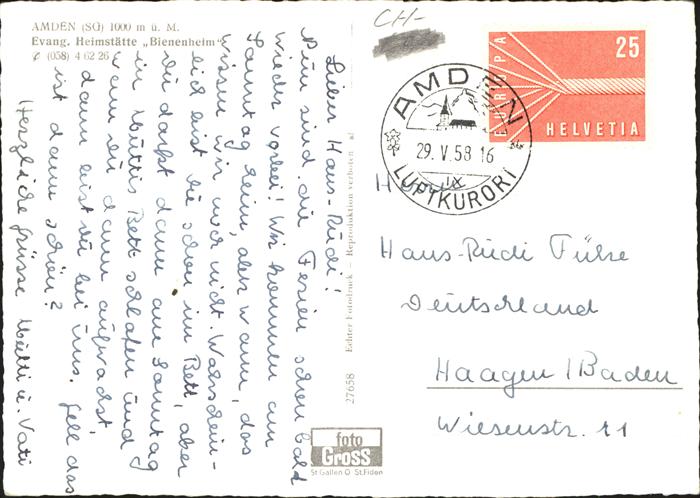 AMDEN (SG) 1000 m ü. M.
Evang. Heimstätte „Bienenheim"
✆ (058) 4 62 26
Lieber Hans-Rudi!
Nun sind die Ferien schon bald
wieder vorbei! Wir kommen am
Sonntag heim, aber wann, das
wissen wir noch nicht. Wahrschein-
lich bist du schon im Bett, aber
du darfst dann am Sonntag
in Muttis Bett schlafen und
wann du dann aufwachst,
dann bist du bei uns. Gell das
ist dann schön?
Herzliche Grüsse Mutti u. Vati
27658 Echter Fotodruck - Reproduktion verboten
foto
GROSS
St Gallen O St. Fiden
CH-
EUROPA
25
HELVETIA
AMDEN
29. V. 58 16
LUFTKURORT
Hans-Rudi
Deutschland
Haagen / Baden
Wiesenstr. 11